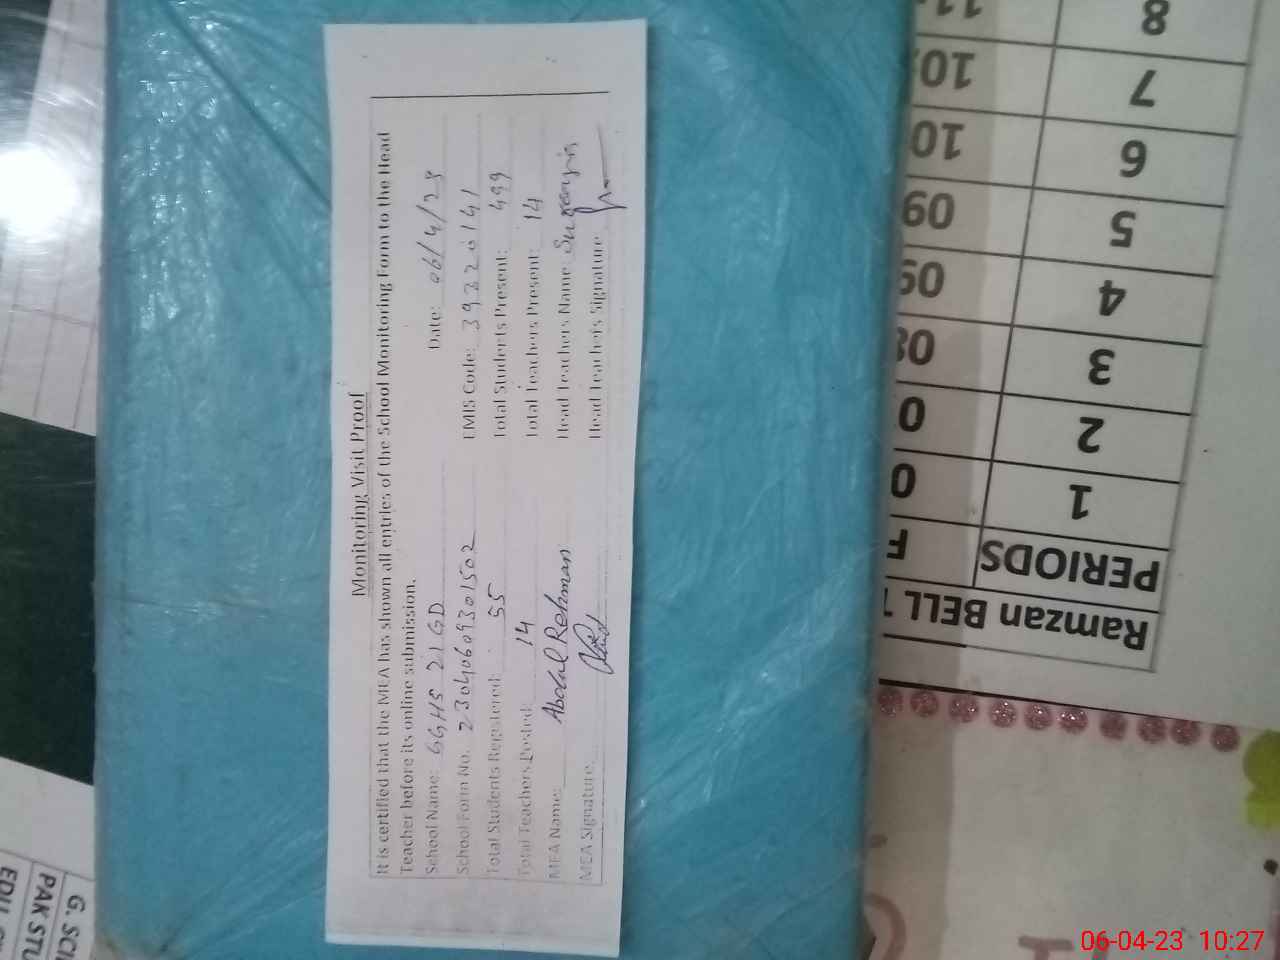 Monitoring Visit Proof
It is certified that the MEA has shown all entries of the School Monitoring Form to the Head
Teacher before its online submission.
School Name: GGHS 21 GD Date: 06/4/23
School Form No. 23040609301502 EMIS Code: 39320141
Total Students Registered: 55 Total Students Present: 499
Total Teachers Posted: 14 Total Teachers Present: 14
MEA Name: Abdul Rehman Head Teachers Name:
MEA Signature: Head Teacher's Signature
Ramzan BELL
PERIODS F
1 0
2 0
3 08
4 09
5 09
6 10
7 10
8 11
G. SCI
PAK STU
EDU
06-04-23 10:27